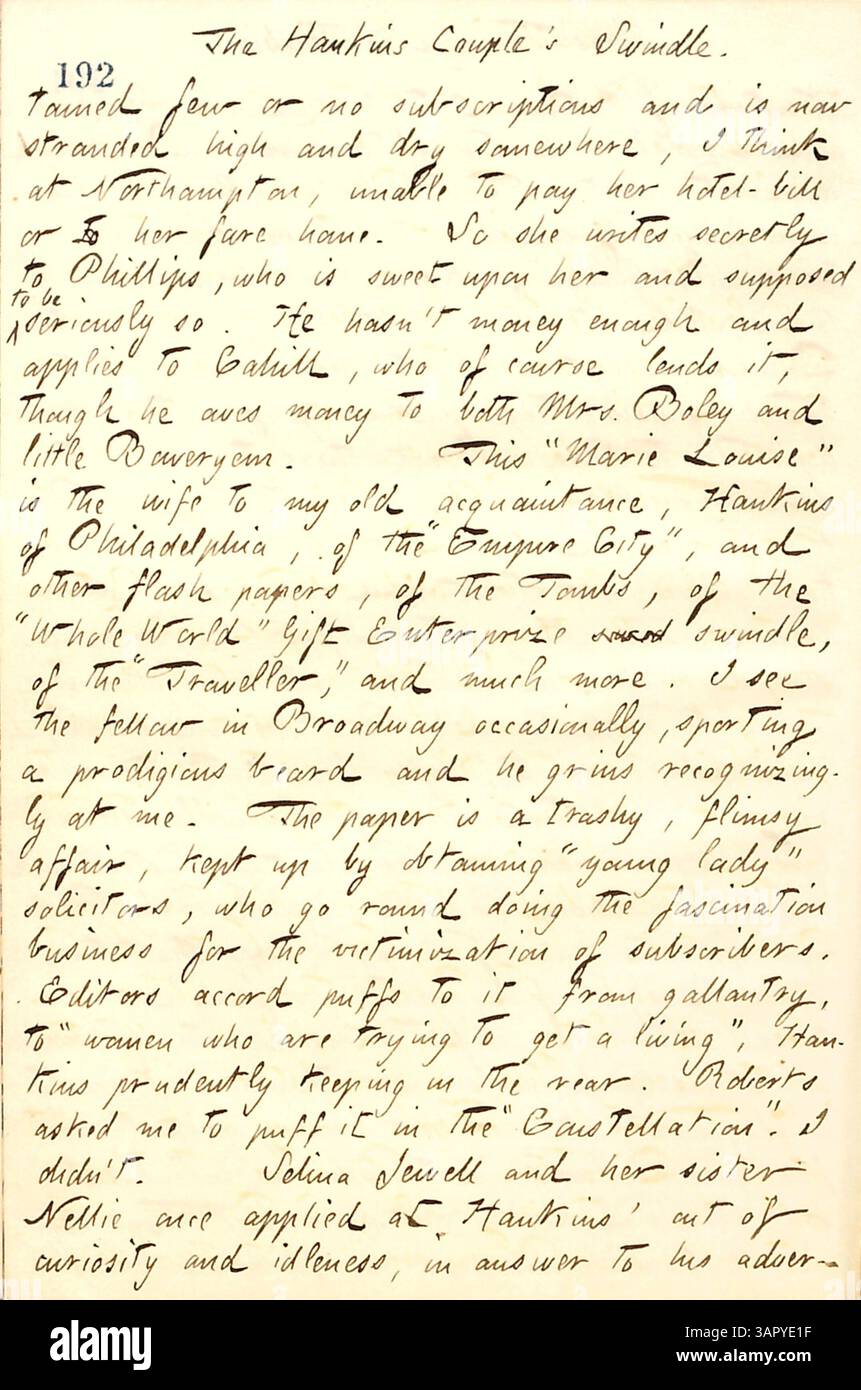 The Hankins Couple's Swindle.
192
tained few or no subscriptions and is now
stranded high and dry somewhere, I think
at Northampton, unable to pay her hotel-bill
or to her fare home. So she writes secretly
to Phillips, who is sweet upon her and supposed
to be
seriously so. He hasn't money enough and
applies to Cahill, who of course lends it,
though he owes money to both Mrs. Boley and
little Boweryem. This "Marie Louise"
is the wife to my old acquaintance, Hankins
of Philadelphia, of the "Empire City", and
other flash papers, of the Tombs, of the
"Whole World" Gift Enterprize swindle,
of the "Traveller," and much more. I see
the fellow in Broadway occasionally, sporting
a prodigious beard and he grins recognizing-
ly at me. The paper is a trashy, flimsy
affair, kept up by obtaining "young lady"
solicitors, who go round doing the fascination
business for the victimization of subscribers.
Editors accord puffs to it from gallantry,
to "women who are trying to get a living", Han-
kins prudently keeping in the rear. Roberts
asked me to puff it in the "Constellation". I
didn't. Selina Jewell and her sister
Nellie once applied at Hankins' out of
curiosity and idleness, in answer to his adver-
alamy
Image ID: 3APYE1F
www.alamy.com